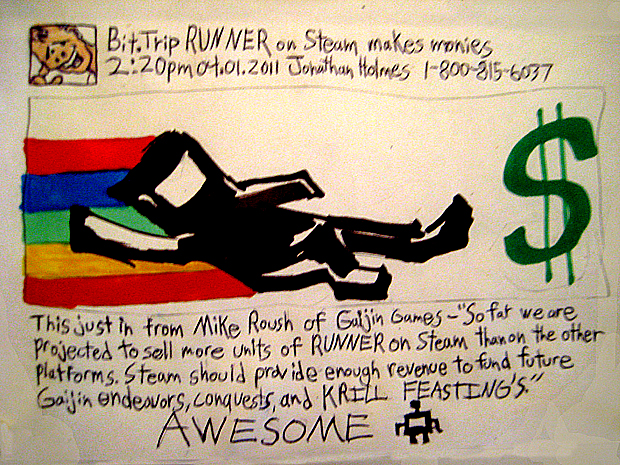 Bit.Trip RUNNER on Steam makes monies
2:20pm 04.01.2011 Jonathan Holmes 1-800-815-6037
$
This just in from Mike Roush of Gaijin Games - "So far we are
projected to sell more units of RUNNER on Steam than on the other
platforms. Steam should provide enough revenue to fund future
Gaijin endeavors, conquests, and KRILL FEASTING'S."
AWESOME